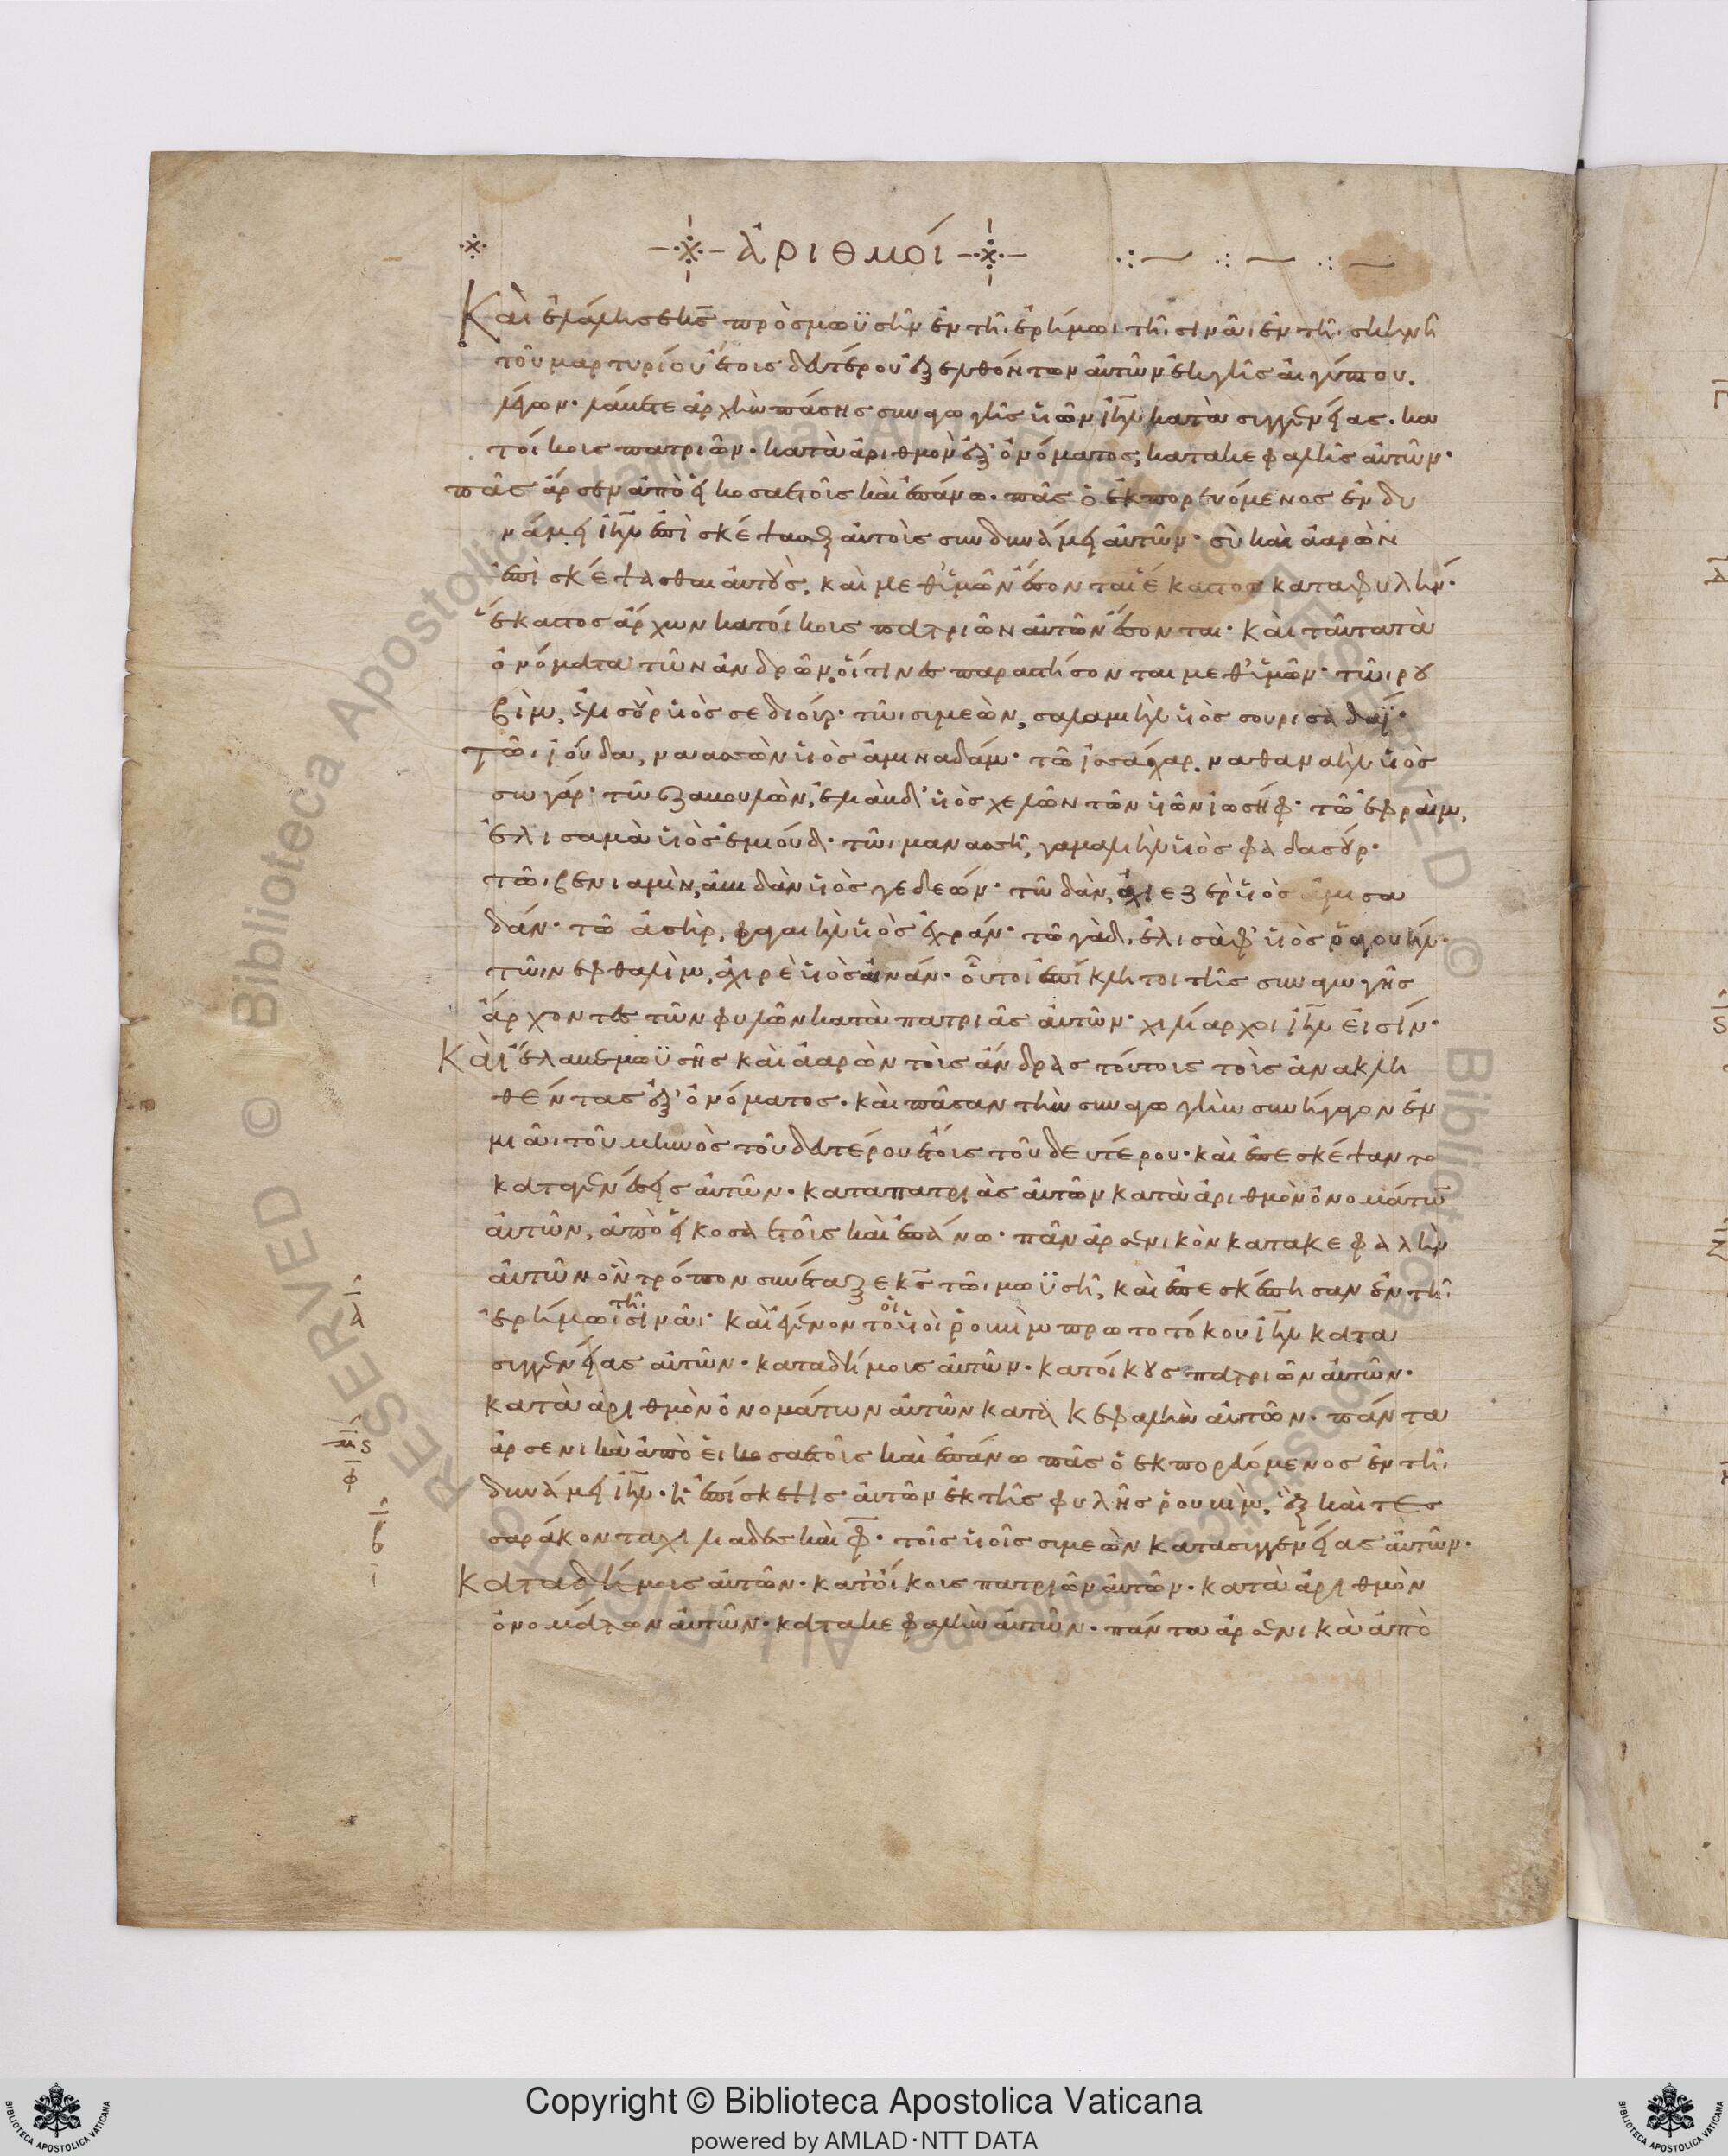 ἀριθμοί
Καὶ ἐλάλησε κς πρὸς μωϋσῆν ἐν τῆι ἐρήμωι τῆι σινᾶι ἐν τῆι σκηνῆ
τοῦ μαρτυρίου ἔτους δευτέρου ἐξελθόντων αὐτῶν ἐκ γῆς αἰγύπτου.
λέγων· λάβετε ἀρχὴν πάσης συναγωγῆς υἱῶν ιηλ κατὰ συγγενείας· κα
τοίκους πατριῶν· κατὰ ἀριθμὸν ἐξ ὀνόματος, κατακεφαλῆς αὐτῶν·
πᾶς ἄρσεν ἀπὸ εἰκοσαετοῦς καὶ ἐπάνω· πᾶς ὁ ἐκπορευόμενος ἐν δυ
νάμει ιηλ ἐπισκέψασθαι αὐτοὺς συν δυνάμει αὐτῶν· σὺ καὶ ἀαρὼν
ἐπισκέψασθαι αὐτούς, καὶ μεθ' ὑμῶν ἔσονται ἕκαστος κατα φυλήν·
ἕκαστος ἄρχων κατοίκους πατριῶν αὐτῶν ἔσονται· καὶ ταῦτα τὰ
ὀνόματα τῶν ἀνδρῶν, οἵτινες παραστήσονται μεθ' ὑμῶν· τῶι ρου
βὶμ, ἐλισοὺρ υἱὸς σεδιούρ· τῶι συμεὼν, σαλαμιὴλ υἱὸς σουρισαδαΐ·
τῶι ἰούδα, ναασσὼν υἱὸς ἀμιναδάμ· τῶ ἰσάχαρ, ναθαναὴλ υἱὸς
σωγάρ· τῶ ζαβουλὼν, ἐλιὰβ υἱὸς χελὼν τῶν υἱῶν ἰωσήφ· τῶ ἐφραὶμ,
ἐλισαμὰ υἱὸς ἐμιούδ· τῶι μανασσῆ, γαμαλιὴλ υἱὸς φαδασούρ·
τῶι βενιαμὶν, ἀβιδὰν υἱὸς γεδεών· τῶ δὰν, ἀχιεζὲρ υἱὸς ἀμισα
δάν· τῶ ἀσὴρ, φαγαιὴλ υἱὸς ἐχράν· τῶ γὰδ, ἐλισὰφ υἱὸς ῥαγουήλ·
τῶι νεφθαλὶμ, ἀχιρὲ υἱὸς αἰνάν· οὗτοι ἐπίκλητοι τῆς συναγωγῆς
ἄρχοντες τῶν φυλῶν κατὰ πατριὰς αὐτῶν· χιλίαρχοι ιηλ εἰσίν·
Καὶ ἔλαβε μωϋσῆς καὶ ἀαρὼν τοὺς ἄνδρας τούτους τοὺς ἀνακλη
θέντας ἐξ ὀνόματος· καὶ πᾶσαν τὴν συναγωγὴν συνήγαγον ἐν
μιᾶι τοῦ μηνὸς τοῦ δευτέρου ἔτους τοῦ δευτέρου· καὶ ἐπεσκέψαντο
κατα γενέσεις αὐτῶν· κατα πατριὰς αὐτῶν κατὰ ἀριθμὸν ὀνομάτω
αὐτῶν, ἀπὸ εἰκοσαετοῦς καὶ ἐπάνω· πᾶν ἀρσενικὸν κατα κεφαλὴν
αὐτῶν ὃν τρόπον συνέταξε κς τῶι μωϋσῆ, καὶ ἐπεσκέπησαν ἐν τῆι
α
ἐρήμωι τῆι σινᾶι· καὶ ἐγένοντο οἱ υἱοὶ ῥουβὶμ πρωτοτόκου ιηλ κατα
συγγενείας αὐτῶν· κατα δήμους αὐτῶν· κατοίκους πατριῶν αὐτῶν·
κατὰ ἀριθμὸν ὀνομάτων αὐτῶν κατὰ κεφαλὴν αὐτῶν· πάντα
μς
ἀρσενικὰ ἀπὸ εἰκοσαετοῦς καὶ ἐπάνω πᾶς ὁ ἐκπορευόμενος ἐν τῆι
φ
δυνάμει ιηλ· ἡ ἐπίσκεψις αὐτῶν ἐκ τῆς φυλῆς ῥουβὶμ, ἓξ καὶ τεσ
β
σαράκοντα χιλιάδες καὶ φ· τοῖς υἱοῖς συμεὼν κατασυγγενείας αὐτῶν·
Κατα δήμους αὐτῶν· κατ' οἴκους πατριῶν αὐτῶν· κατὰ ἀριθμὸν
ὀνομάτων αὐτῶν· κατα κεφαλὴν αὐτῶν· πάντα ἀρσενικὰ ἀπὸ
© Biblioteca Apostolica Vaticana ALL RIGHTS RESERVED © Biblioteca Apostolica Vaticana ALL RIGHTS RESERVED
Copyright © Biblioteca Apostolica Vaticana
powered by AMLAD·NTT DATA
BIBLIOTECA APOSTOLICA VATICANA
BIBLIOTECA APOSTOLICA VATICANA